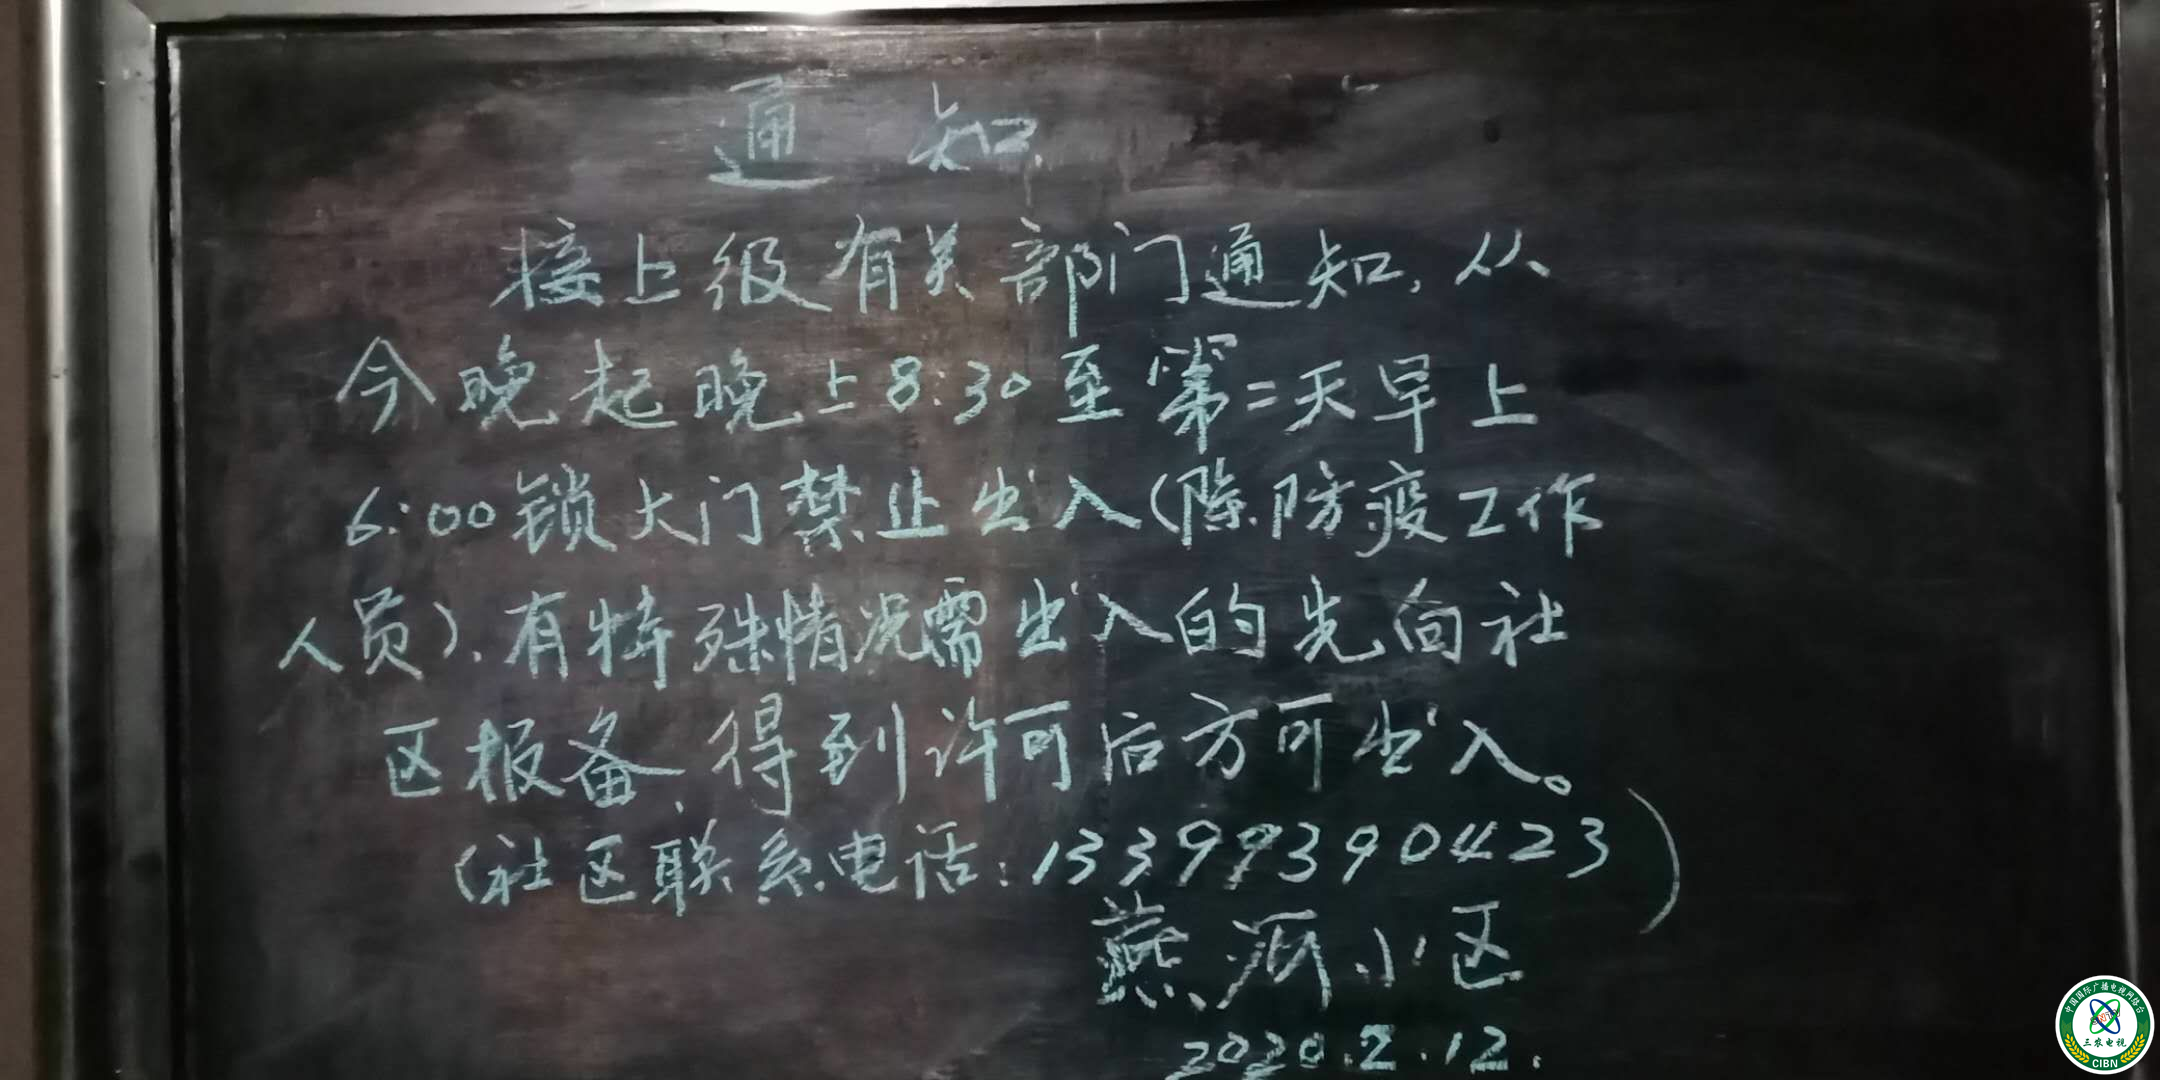 通知
接上级有关部门通知,从
今晚起晚上8:30至第二天早上
6:00锁大门禁止出入(除防疫工作
人员).有特殊情况需出入的先向社
区报备,得到许可后方可出入。
(社区联系电话:13399390423)
燕河小区
2020.2.12.
中国国际广播电视网络台
三农电视
CIBN